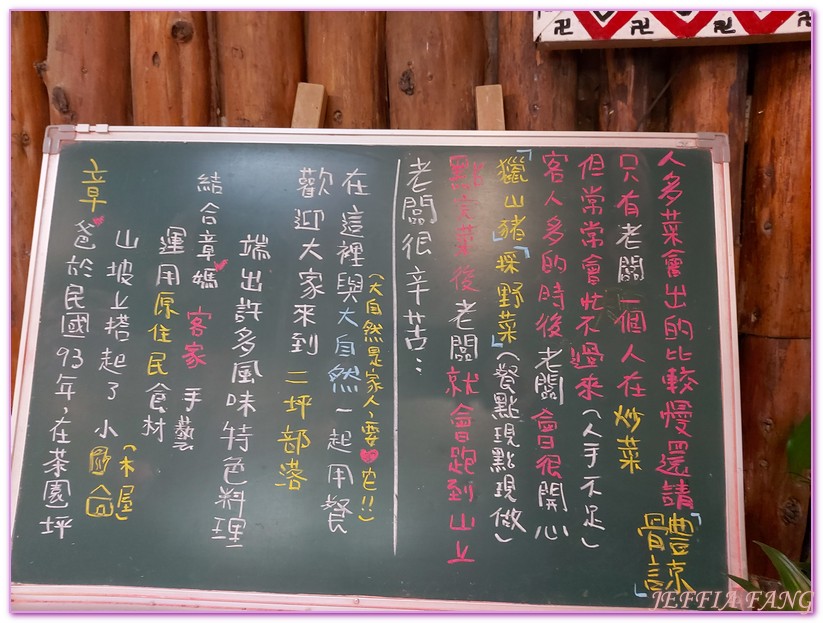 人多菜會出的比較慢還請「體諒」
只有老闆一個人在炒菜
但常常會忙不過來(人手不足)
客人多的時後老闆會很開心
「獵山豬」「採野菜」(餐點現點現做)
點完菜後老闆就會跑到山上
老闆很辛苦:
章♥爸於民國93年,在茶園坪
山坡上搭起了小(木屋)
運用原住民食材
結合章媽♥客家手藝
端出許多風味特色料理
歡迎大家來到二坪部落
在這裡與大自然一起用餐
(大自然是家人,要♥它!!)
JEFFIA FANG